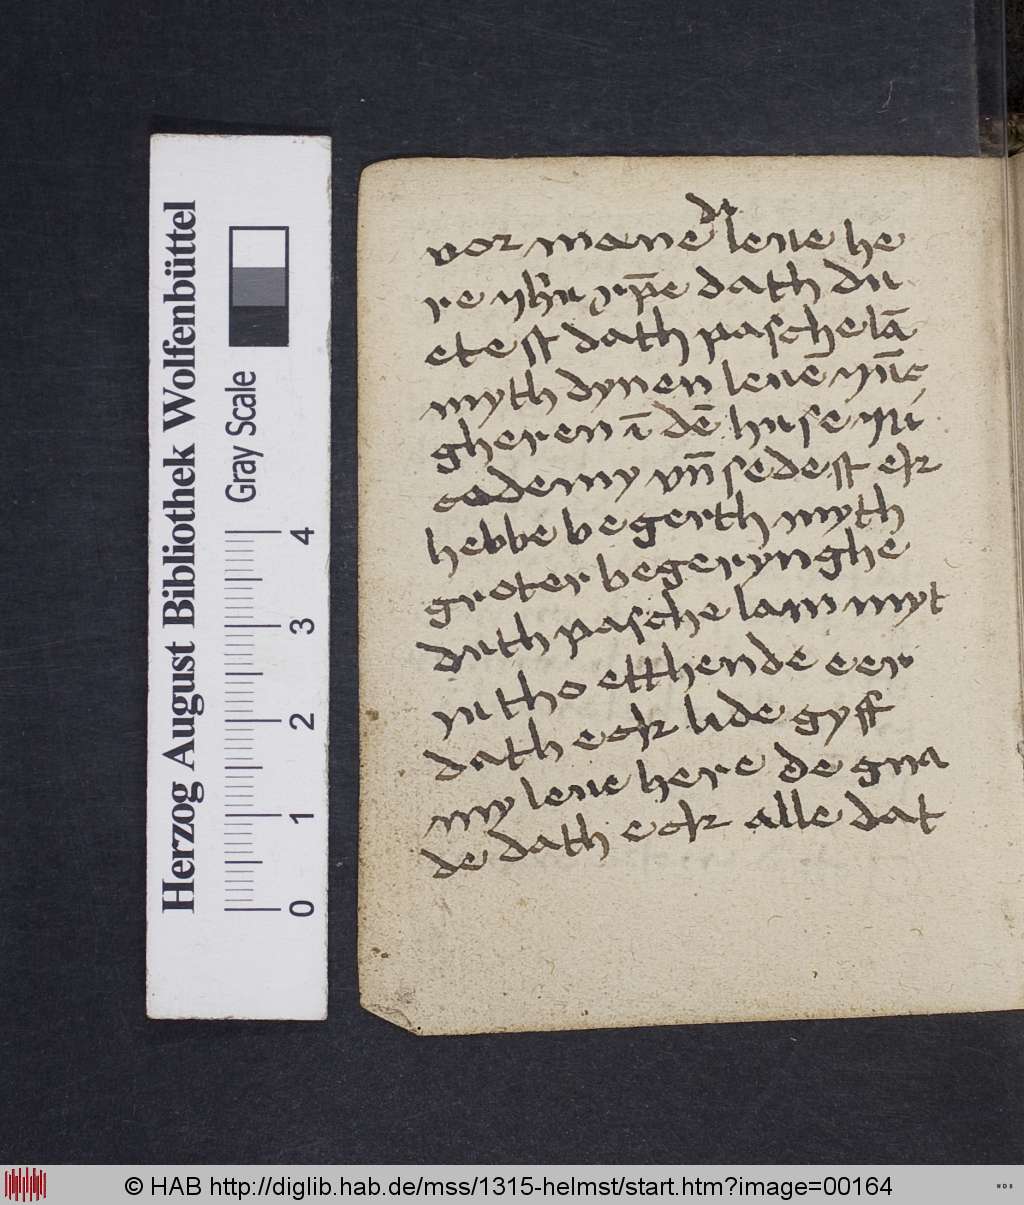 vor mane di leue he
re yhū xp̄e dath du
etest dath pasche lā
myth dynen leuē yūc
gheren ī dē huse ni
codemy vn̄ sedest ek
hebbe begerth myth
groter begerynghe
duth pasche lam myt
iu tho etthende eer
dath eck lide gyff
my leue here de gna
de dath eck alle dat
Herzog August Bibliothek Wolfenbüttel
Gray Scale
0 1 2 3 4
© HAB http://diglib.hab.de/mss/1315-helmst/start.htm?image=00164